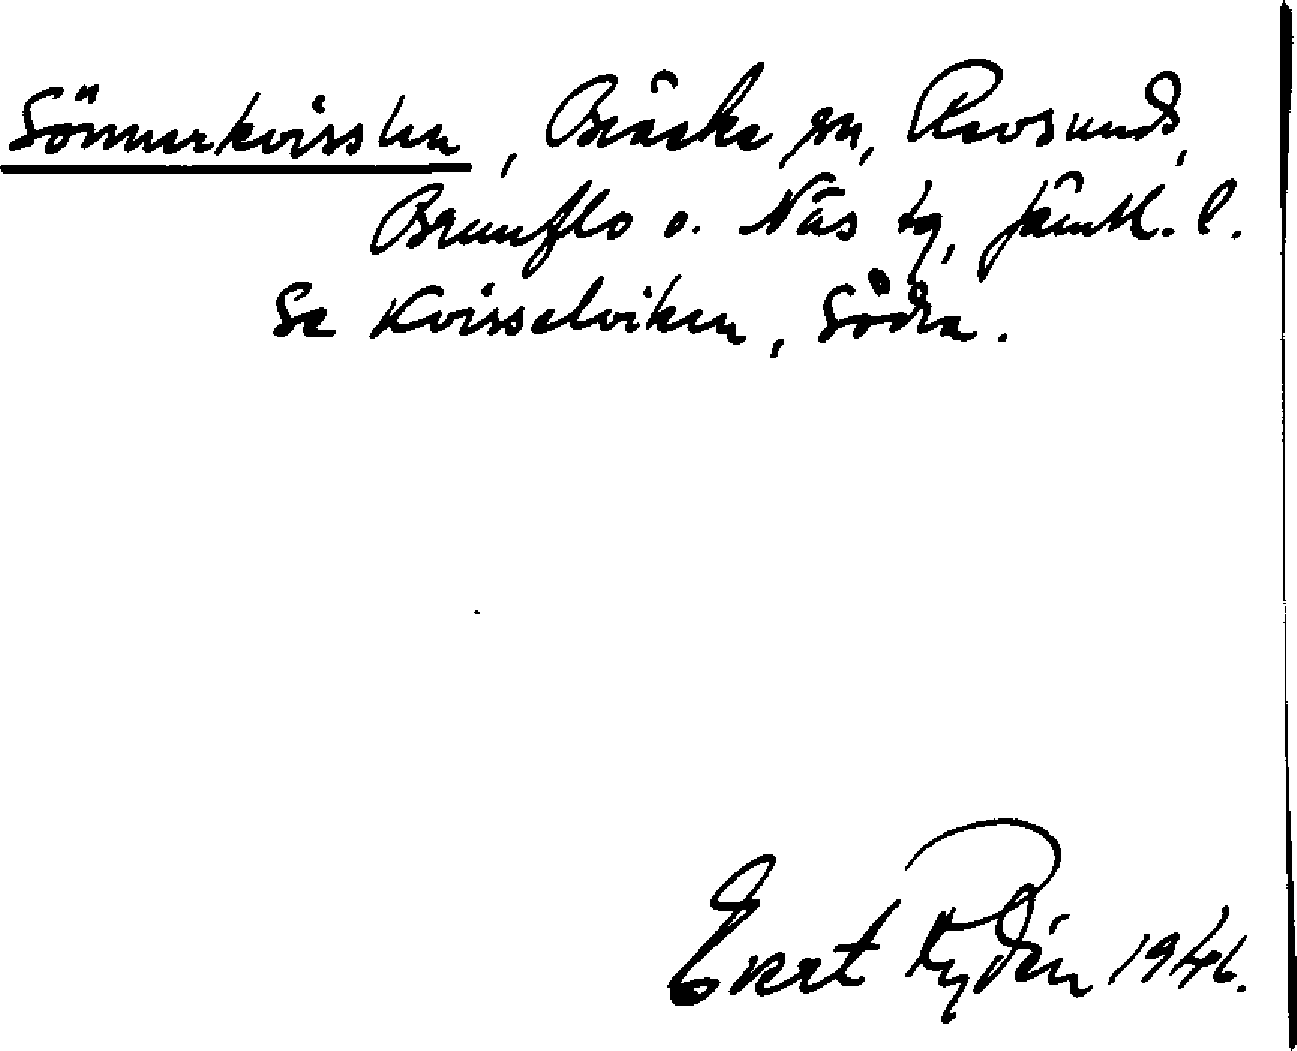 Sönnerkvisslen, Bräcke sn, Revsunds,
Brunflo o. Näs tg, Jämtl. l.
Se Kvisselviken, Södra.
Evert Rydin 1946.